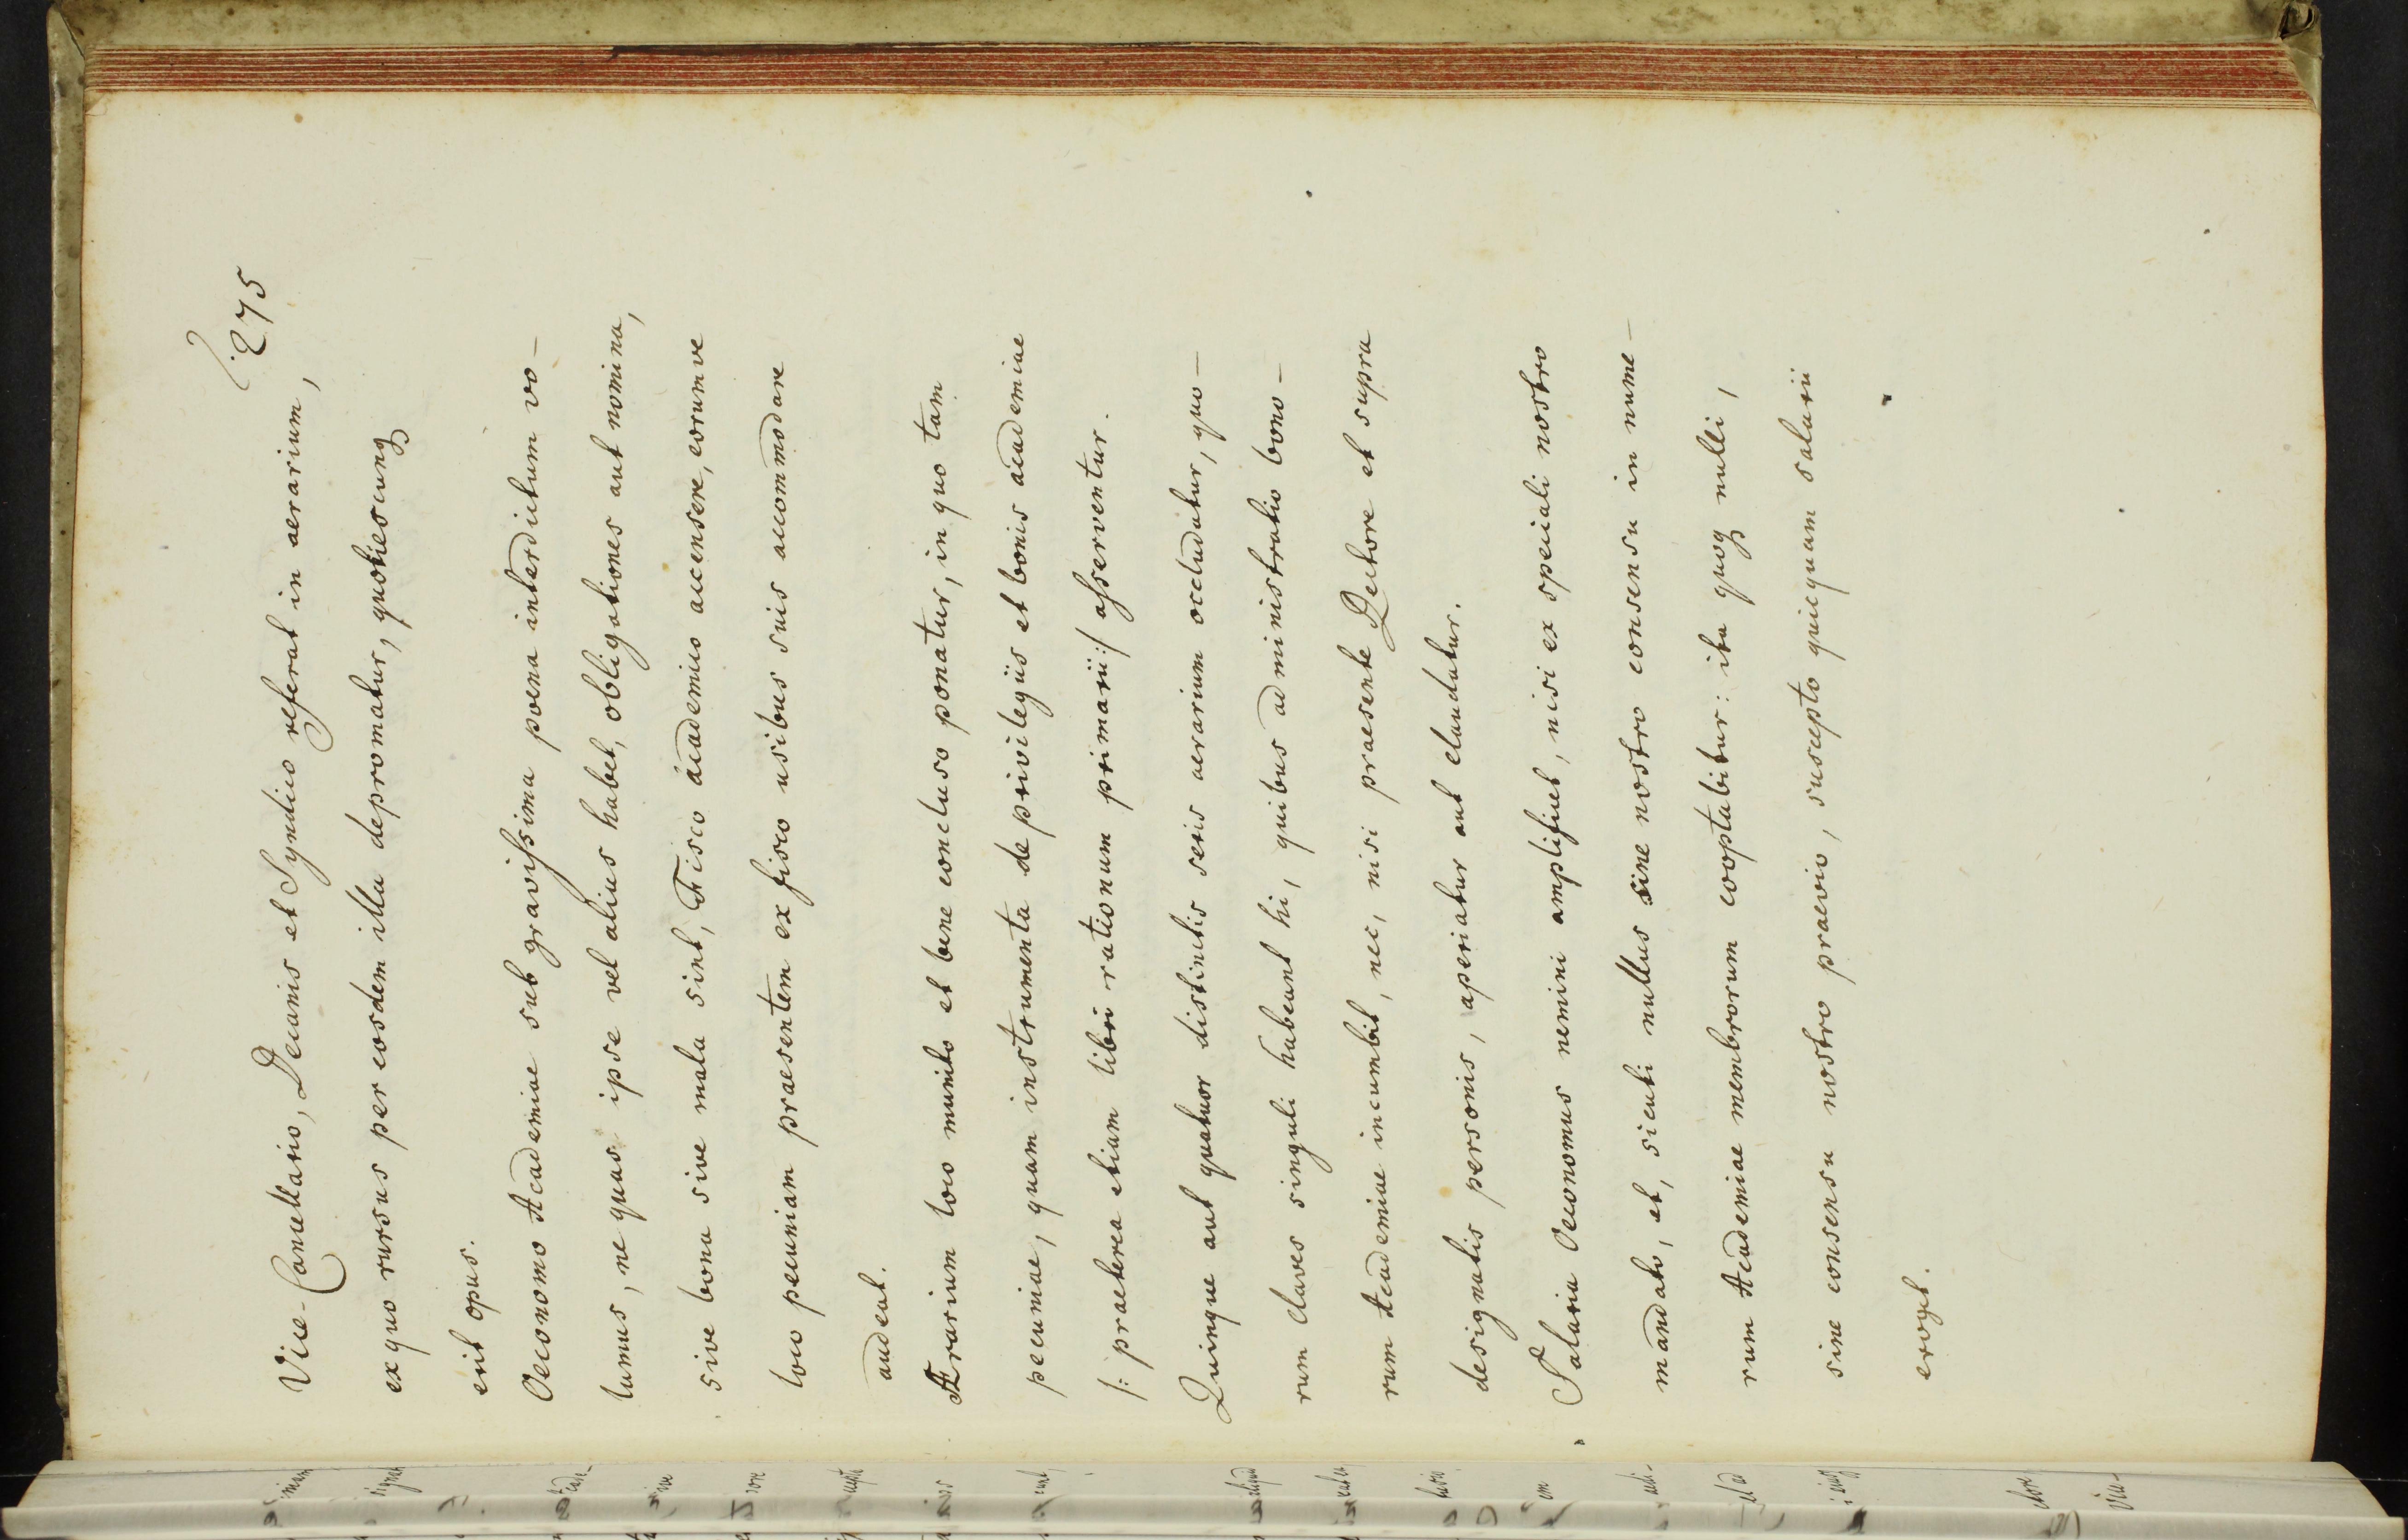 275
Vice-Cancellario, Decanis et Syndico referat in aerarium,
ex quo rursus per eosdem illa depromatur, quotiescunq
erit opus.
Oeconomo Academiae sub gravissima poena interdictum vo-
lumus, ne quas ipse vel alius habet, obligationes aut nomina,
sive bona sive mala sint, Fisco academico accensere, eorumve
loco pecuniam praesentem ex fisco usibus suis accommodare
audeat.
Aerarium loco munito et bene concluso ponatur, in quo tam
pecuniae, quam instrumenta de privilegiis et bonis academiae
/: praeterea etiam libri rationum primarii :/ asserventur.
Quinque aut quatuor distinctis seris aerarium occludatur, quo-
rum claves singuli habeant hi, quibus administratio bono-
rum Academiae incumbit, nec, nisi praesente Rectore et supra
designatis personis, aperiatur aut claudatur.
Salaria Oeconomus nemini amplificet, nisi ex speciali nostro
mandato, et, sicuti nullus sine nostro consensu in nume-
rum Academiae membrorum cooptabitur: ita quoq nulli,
sine consensu nostro praevio, suscepto quicquam salarii
eroget.